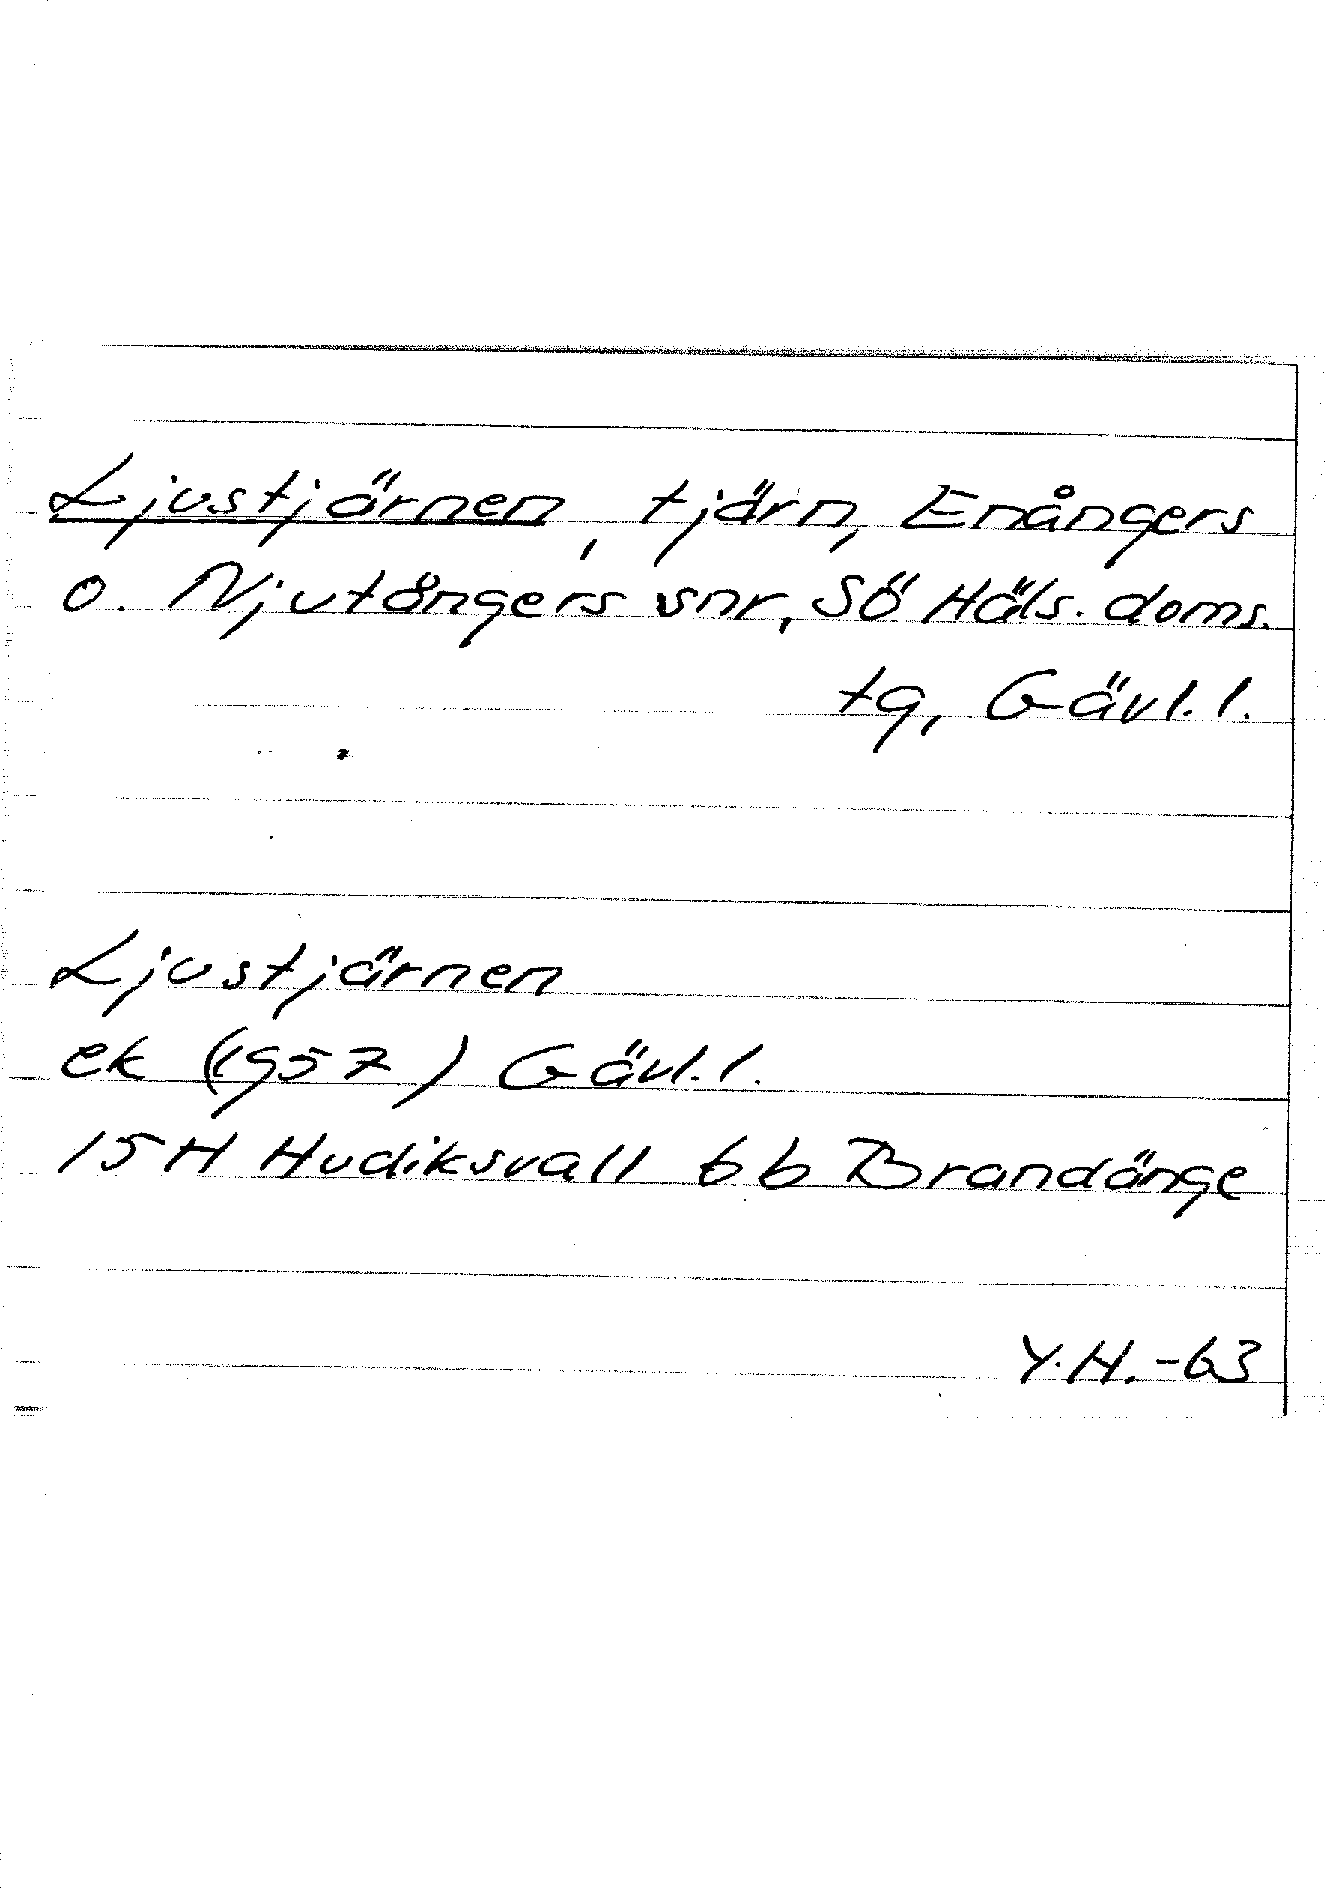 Ljustjärnen, tjärn, Enångers
o. Njutångers snr, Sö Häls. doms.
tg, Gävl. l.
Ljustjärnen
ek (1957) Gävl. l.
15H Hudiksvall 6b Brandänge
Y.H. -63